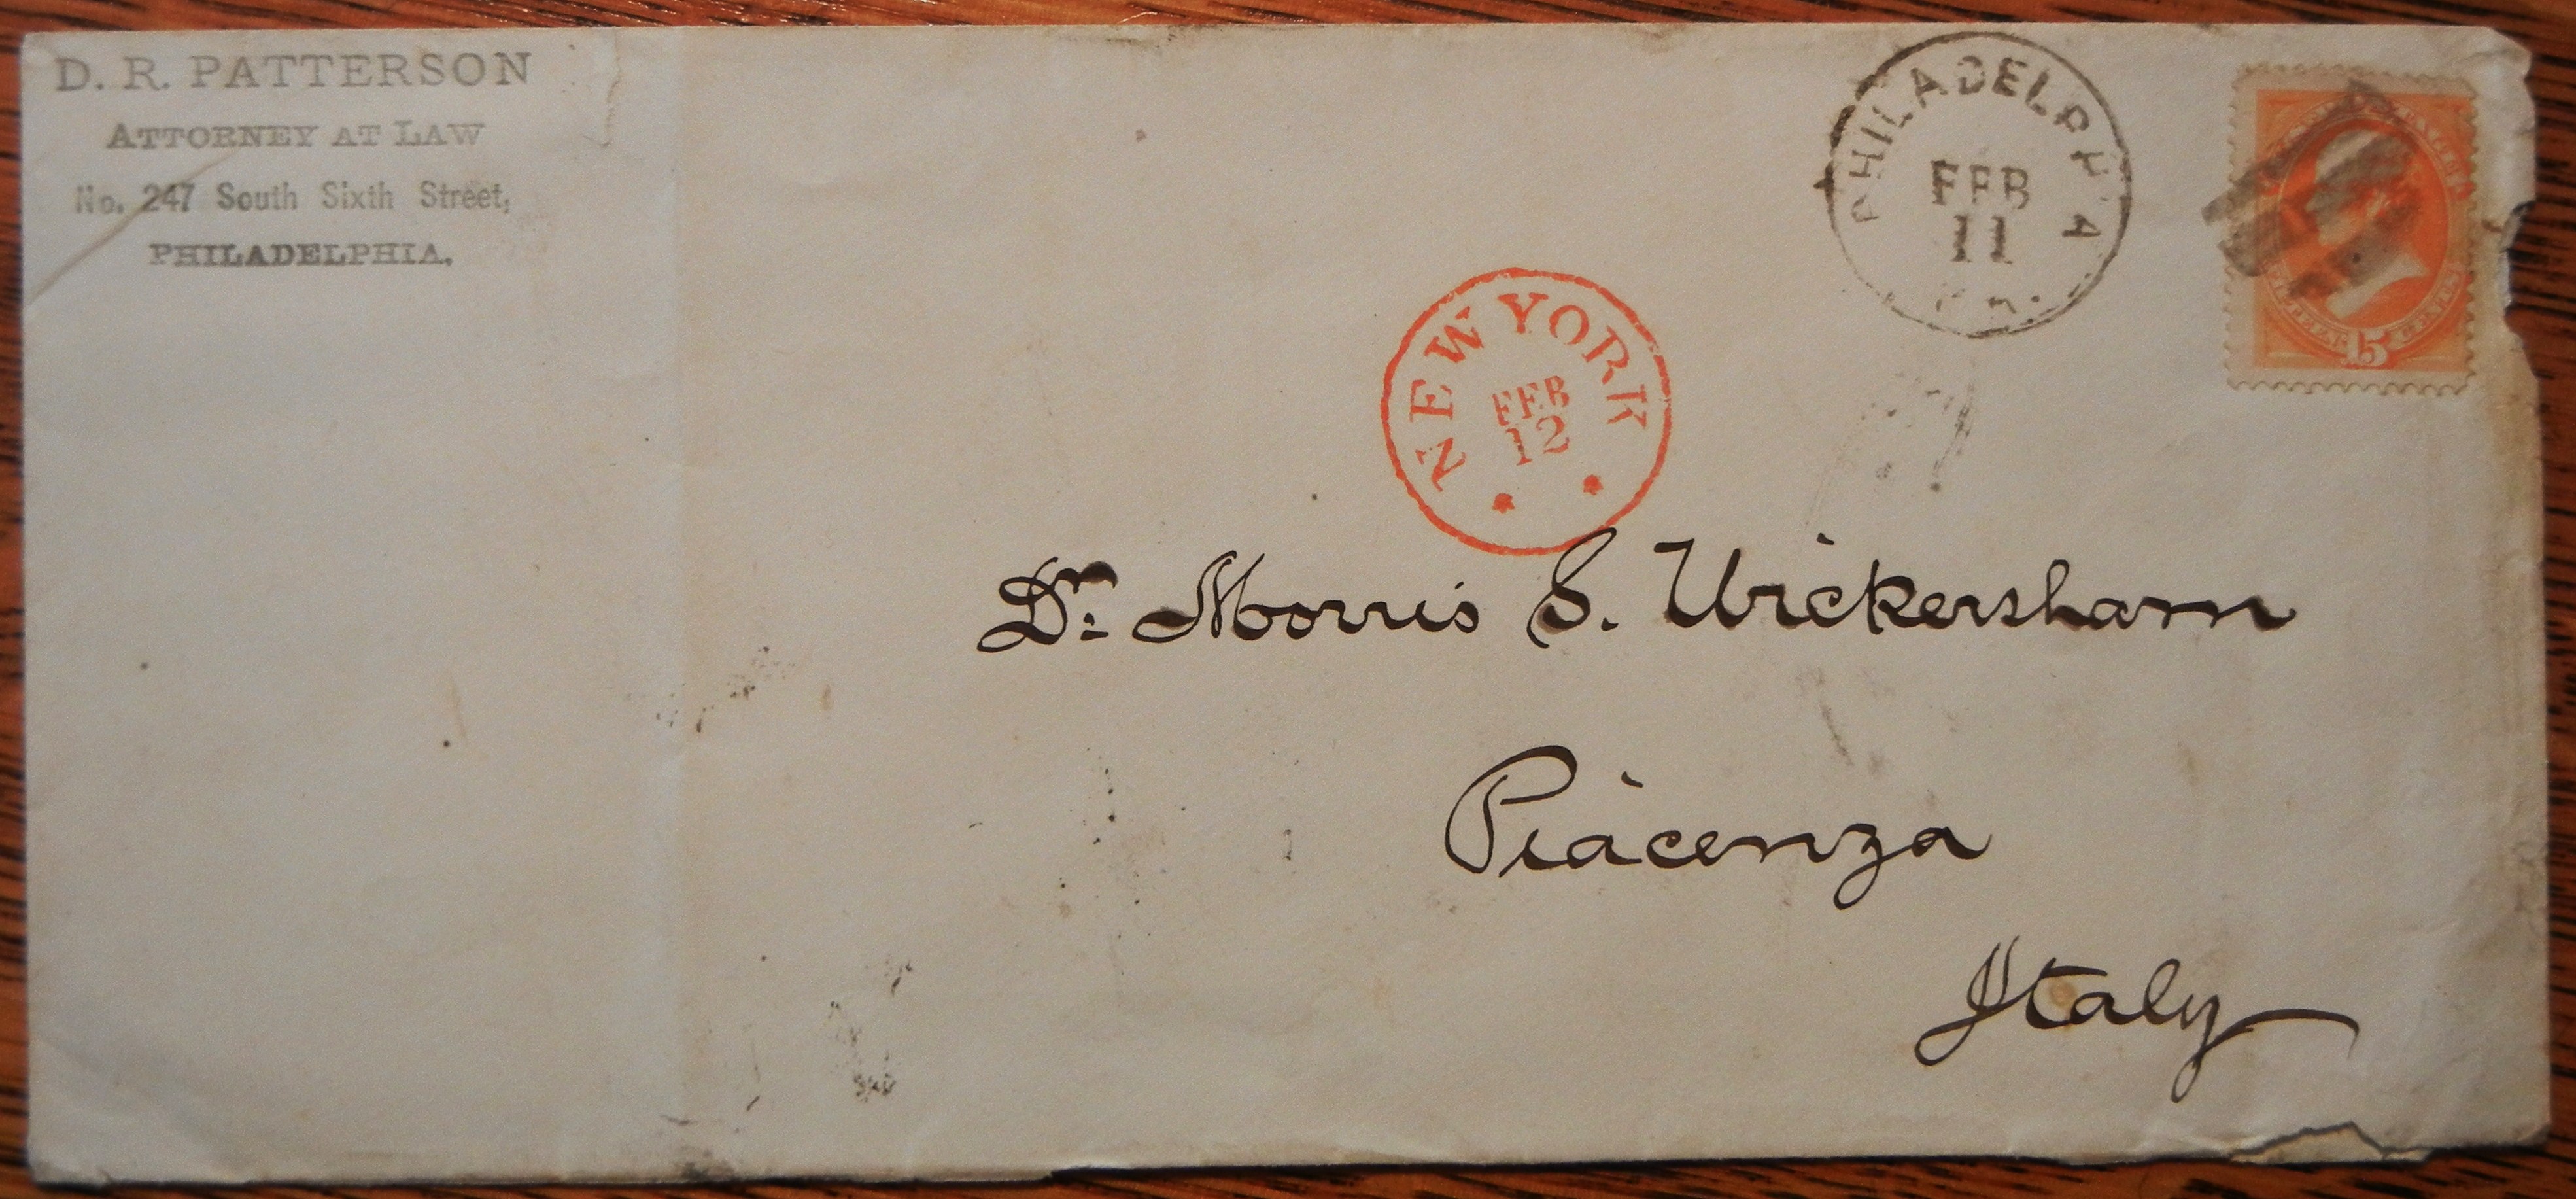 D. R. PATTERSON
ATTORNEY AT LAW
No. 247 South Sixth Street,
PHILADELPHIA.
PHILADELPHIA
FEB
11
PA.
15
NEW YORK
FEB
12
Dr. Morris S. Wickersham
Piacenza
Italy